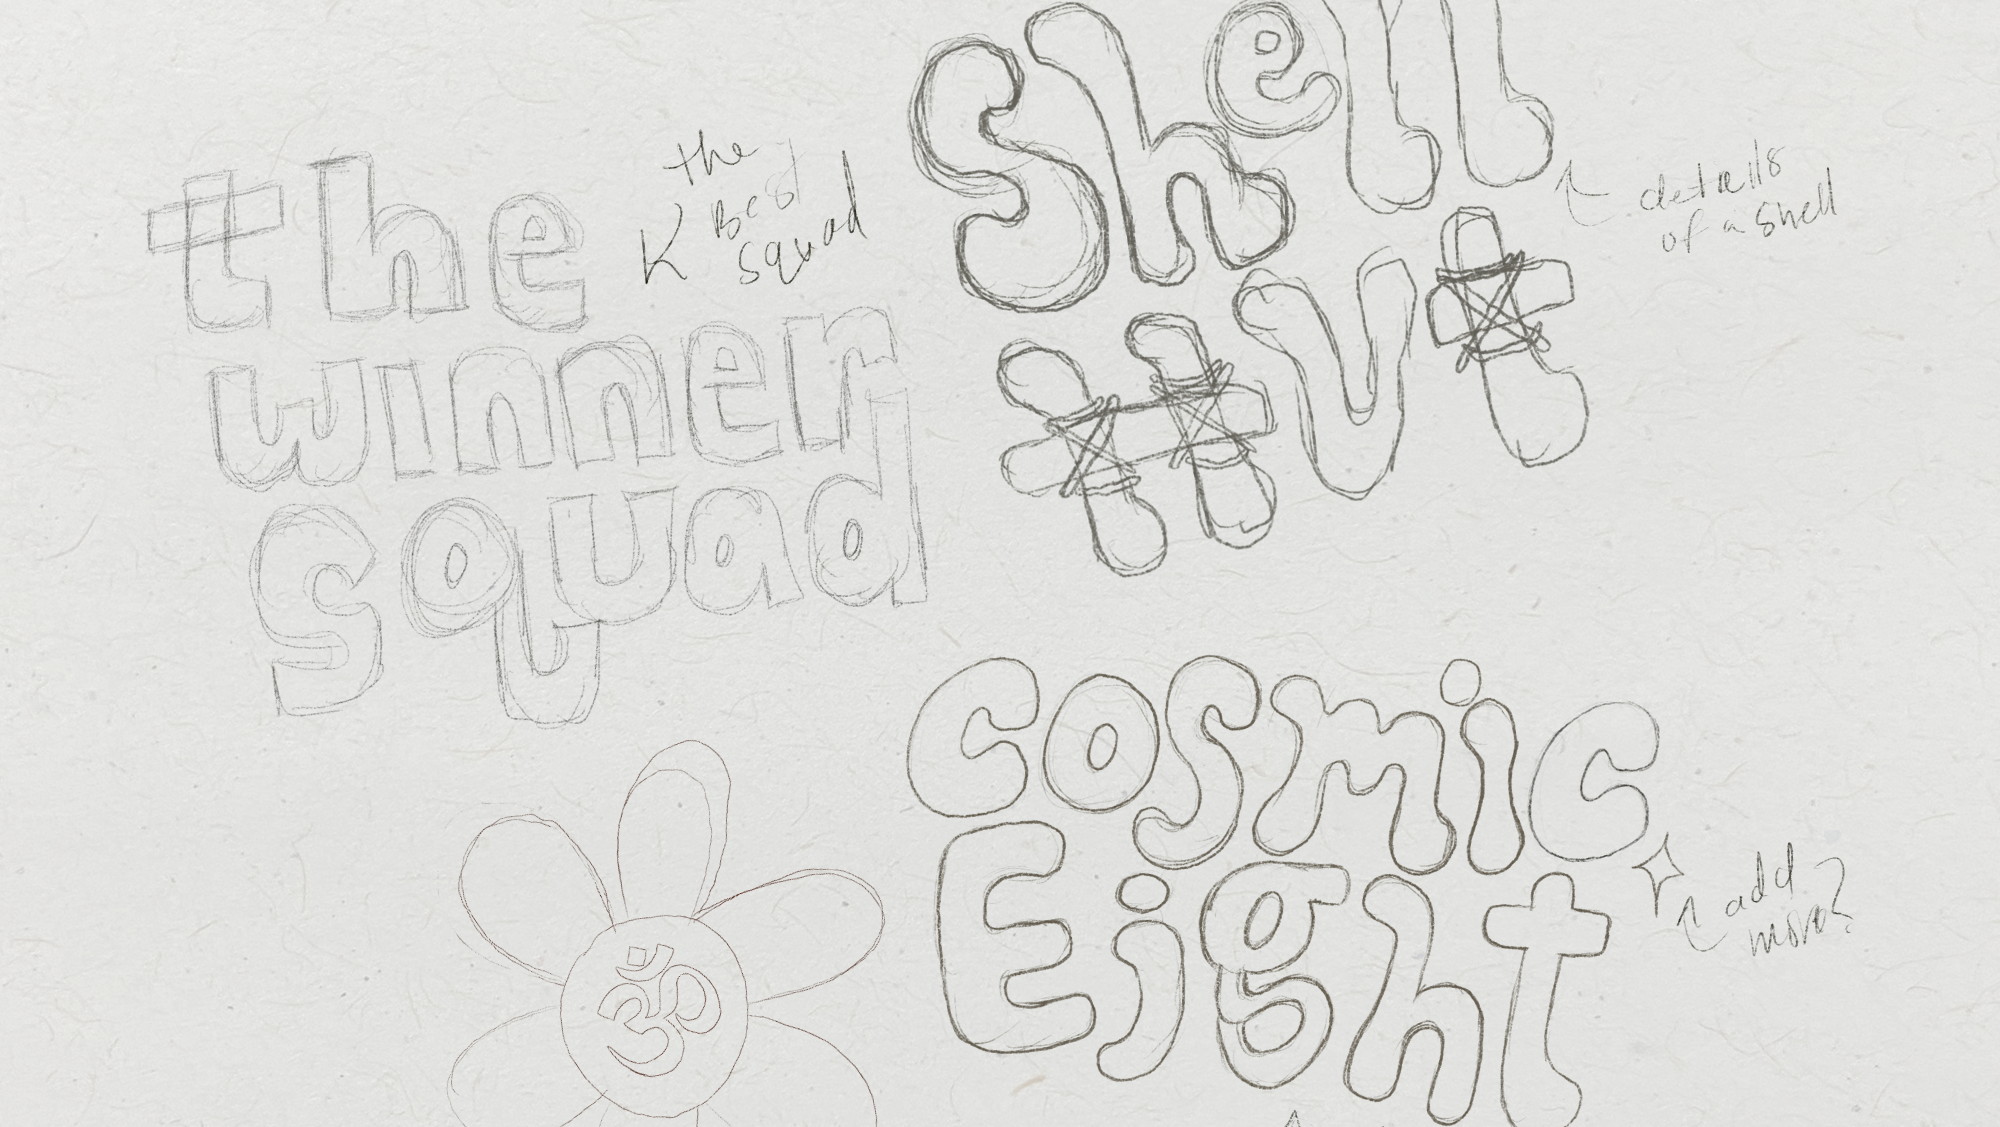 the
winner
squad
the
Best
squad
Shell
HVt
details
of a shell
cosmic
Eight
add
more?
ॐ